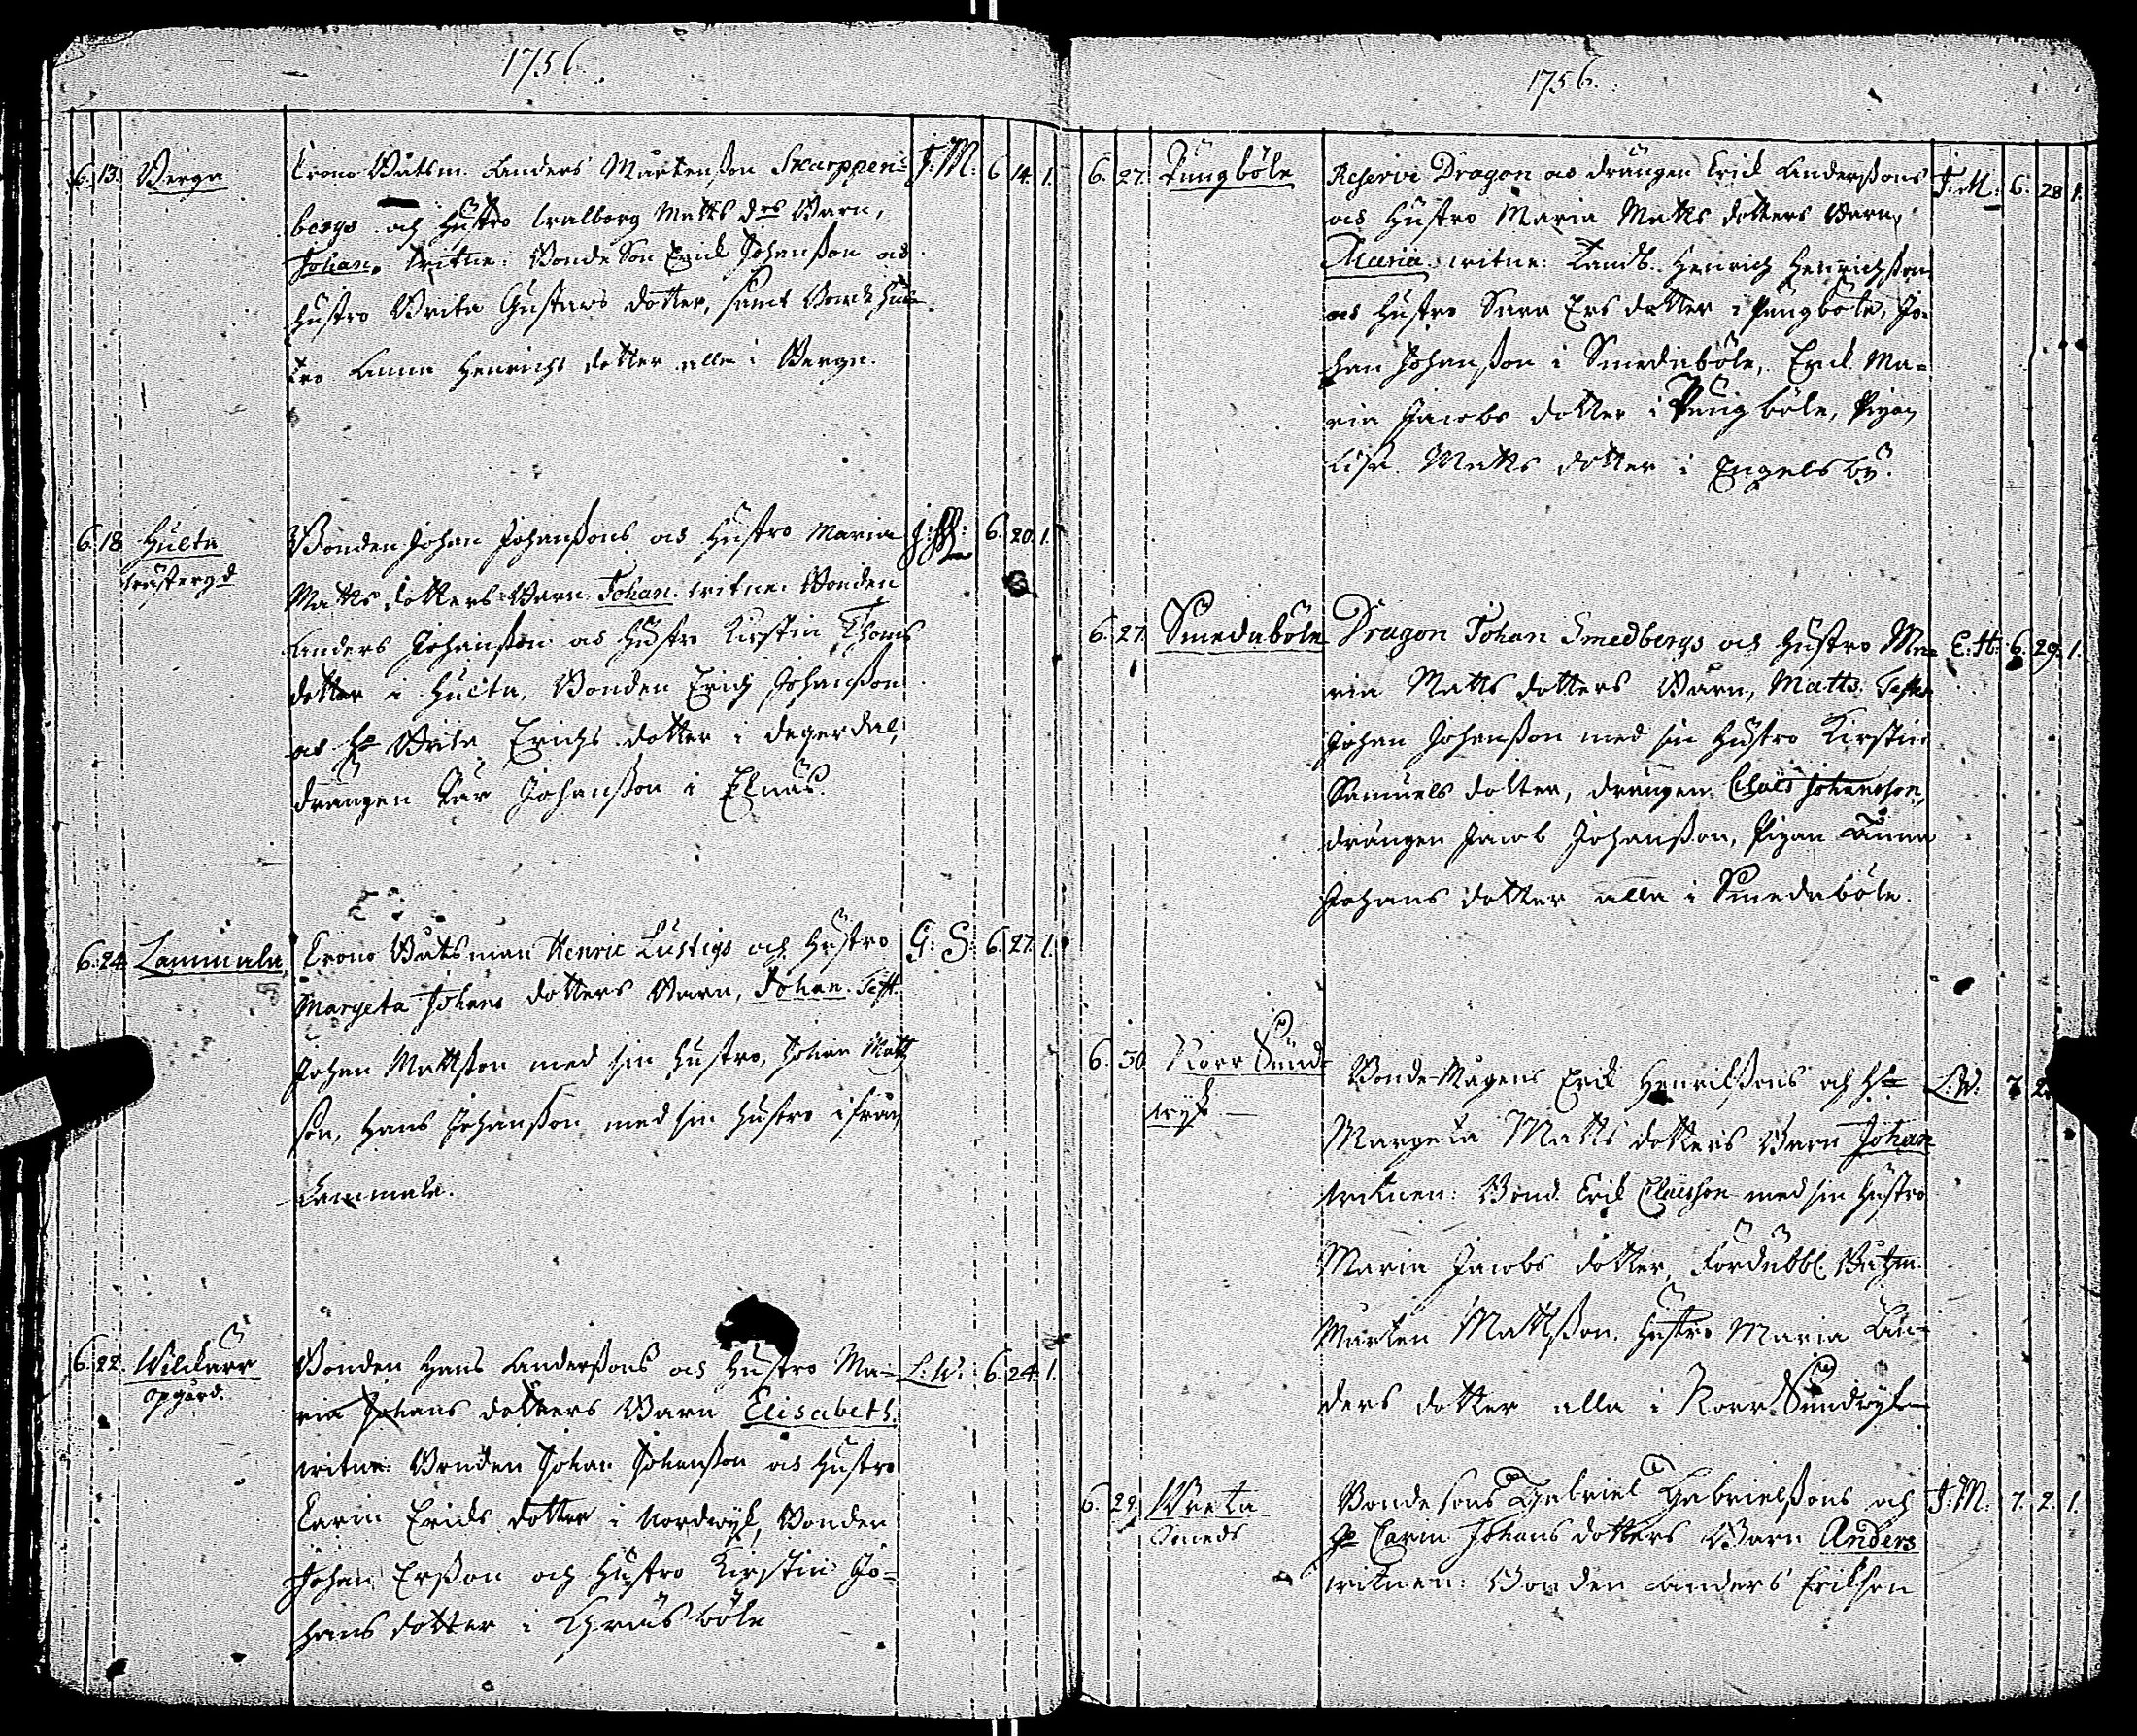 1756.
6. 13. Berga Crono Båtsm. Anders Mårtenßon Skarppen= J. M: 6 14. 1.
bergs och Hustro Walborg Matts drs Barn,
Johan. Witne: Bonde Son Erick Johanßon as
Hustro Brita Gustavs dotter, samt Bonde Hus-
tro Anna Henrichs dotter alla i Berga.
6. 18 Hulta Bonden Johan Johanßons as Hustro Maria 6. 20. 1.
Matts dotters Barn Johan. Witne: Bonden
Anders Johanßon as Hustro Kirstin Thoms
dotter i Hulta, Bonden Erich Johanßon
as Ho Brita Erichs dotter i Degerdal,
drängen Johanßon i Elnäs.
6. 24. Lammala Crono Båtsman Henric Lustigs och Hustro G: S: 6. 27. 1.
Margeta Johans dotters Barn, Johan. Test.
Johan Mattßon med sin Hustro, Johan Matts
son, Hans Johanßon med sin Hustro ifrån
Lammala.
6. 22. Wilckarr Bonden Hans Anderßons as Hustro Ma- L: W: 6. 24. 1.
opgård.
ria Johans dotters Barn Elisabeth.
witne: Bonden Johan Johanßon as Hustro
Carin Ericks dotter i Nordwyk, Bonden
Johan Erßon och Hustro Kirstin Jo-
hans dotter i Gräsböle
1756.
6. 27. Pungböle Reserve Dragon as drängen Erick Anderßons J. M: 6. 28 1.
as Hustro Maria Matts dotters Barn,
Maria. witne: Landb. Henrich Henrichßon
as Hustro Sara Ers dotter i Pungböle, Jo-
han Johanßon i Smedaböle, Erick Ma-
ria Jacobs dotter i Pungböle, Pigan
Lisa Matts dotter i Engelsby.
6. 27. Smedaböle Dragon Johan Smedbergs as Hustro Ma- E: H: 6. 29. 1.
ria Matts dotters Barn, Matts. Test.
Johan Johanßon med sin Hustro Kirstin
Samuels dotter, drängen Claes Johansson,
drängen Jacob Johanßon, Pigan Anna
Johans dotter alla i Smedaböle.
6. 30. Norr Sund= Bonde Mågens Erick Henrikßons och Ho L: W: 7 2
wyk
Margeta Matts dotters Barn Johan
Witnen: Bond. Erik Claesson med sin Hustro
Maria Jacobs dotter, Fördubbl. Båtzm.
Mårten Mattßon, Hustro Maria An-
ders dotter alla i Norr Sundwyk
6. 29. Wreta Bondesons Gabriel Gabrielßons och J: M: 7. 2. 1.
Smeds
Ho Carin Johans dotters Barn Anders
witnen: Bonden Anders Erikson